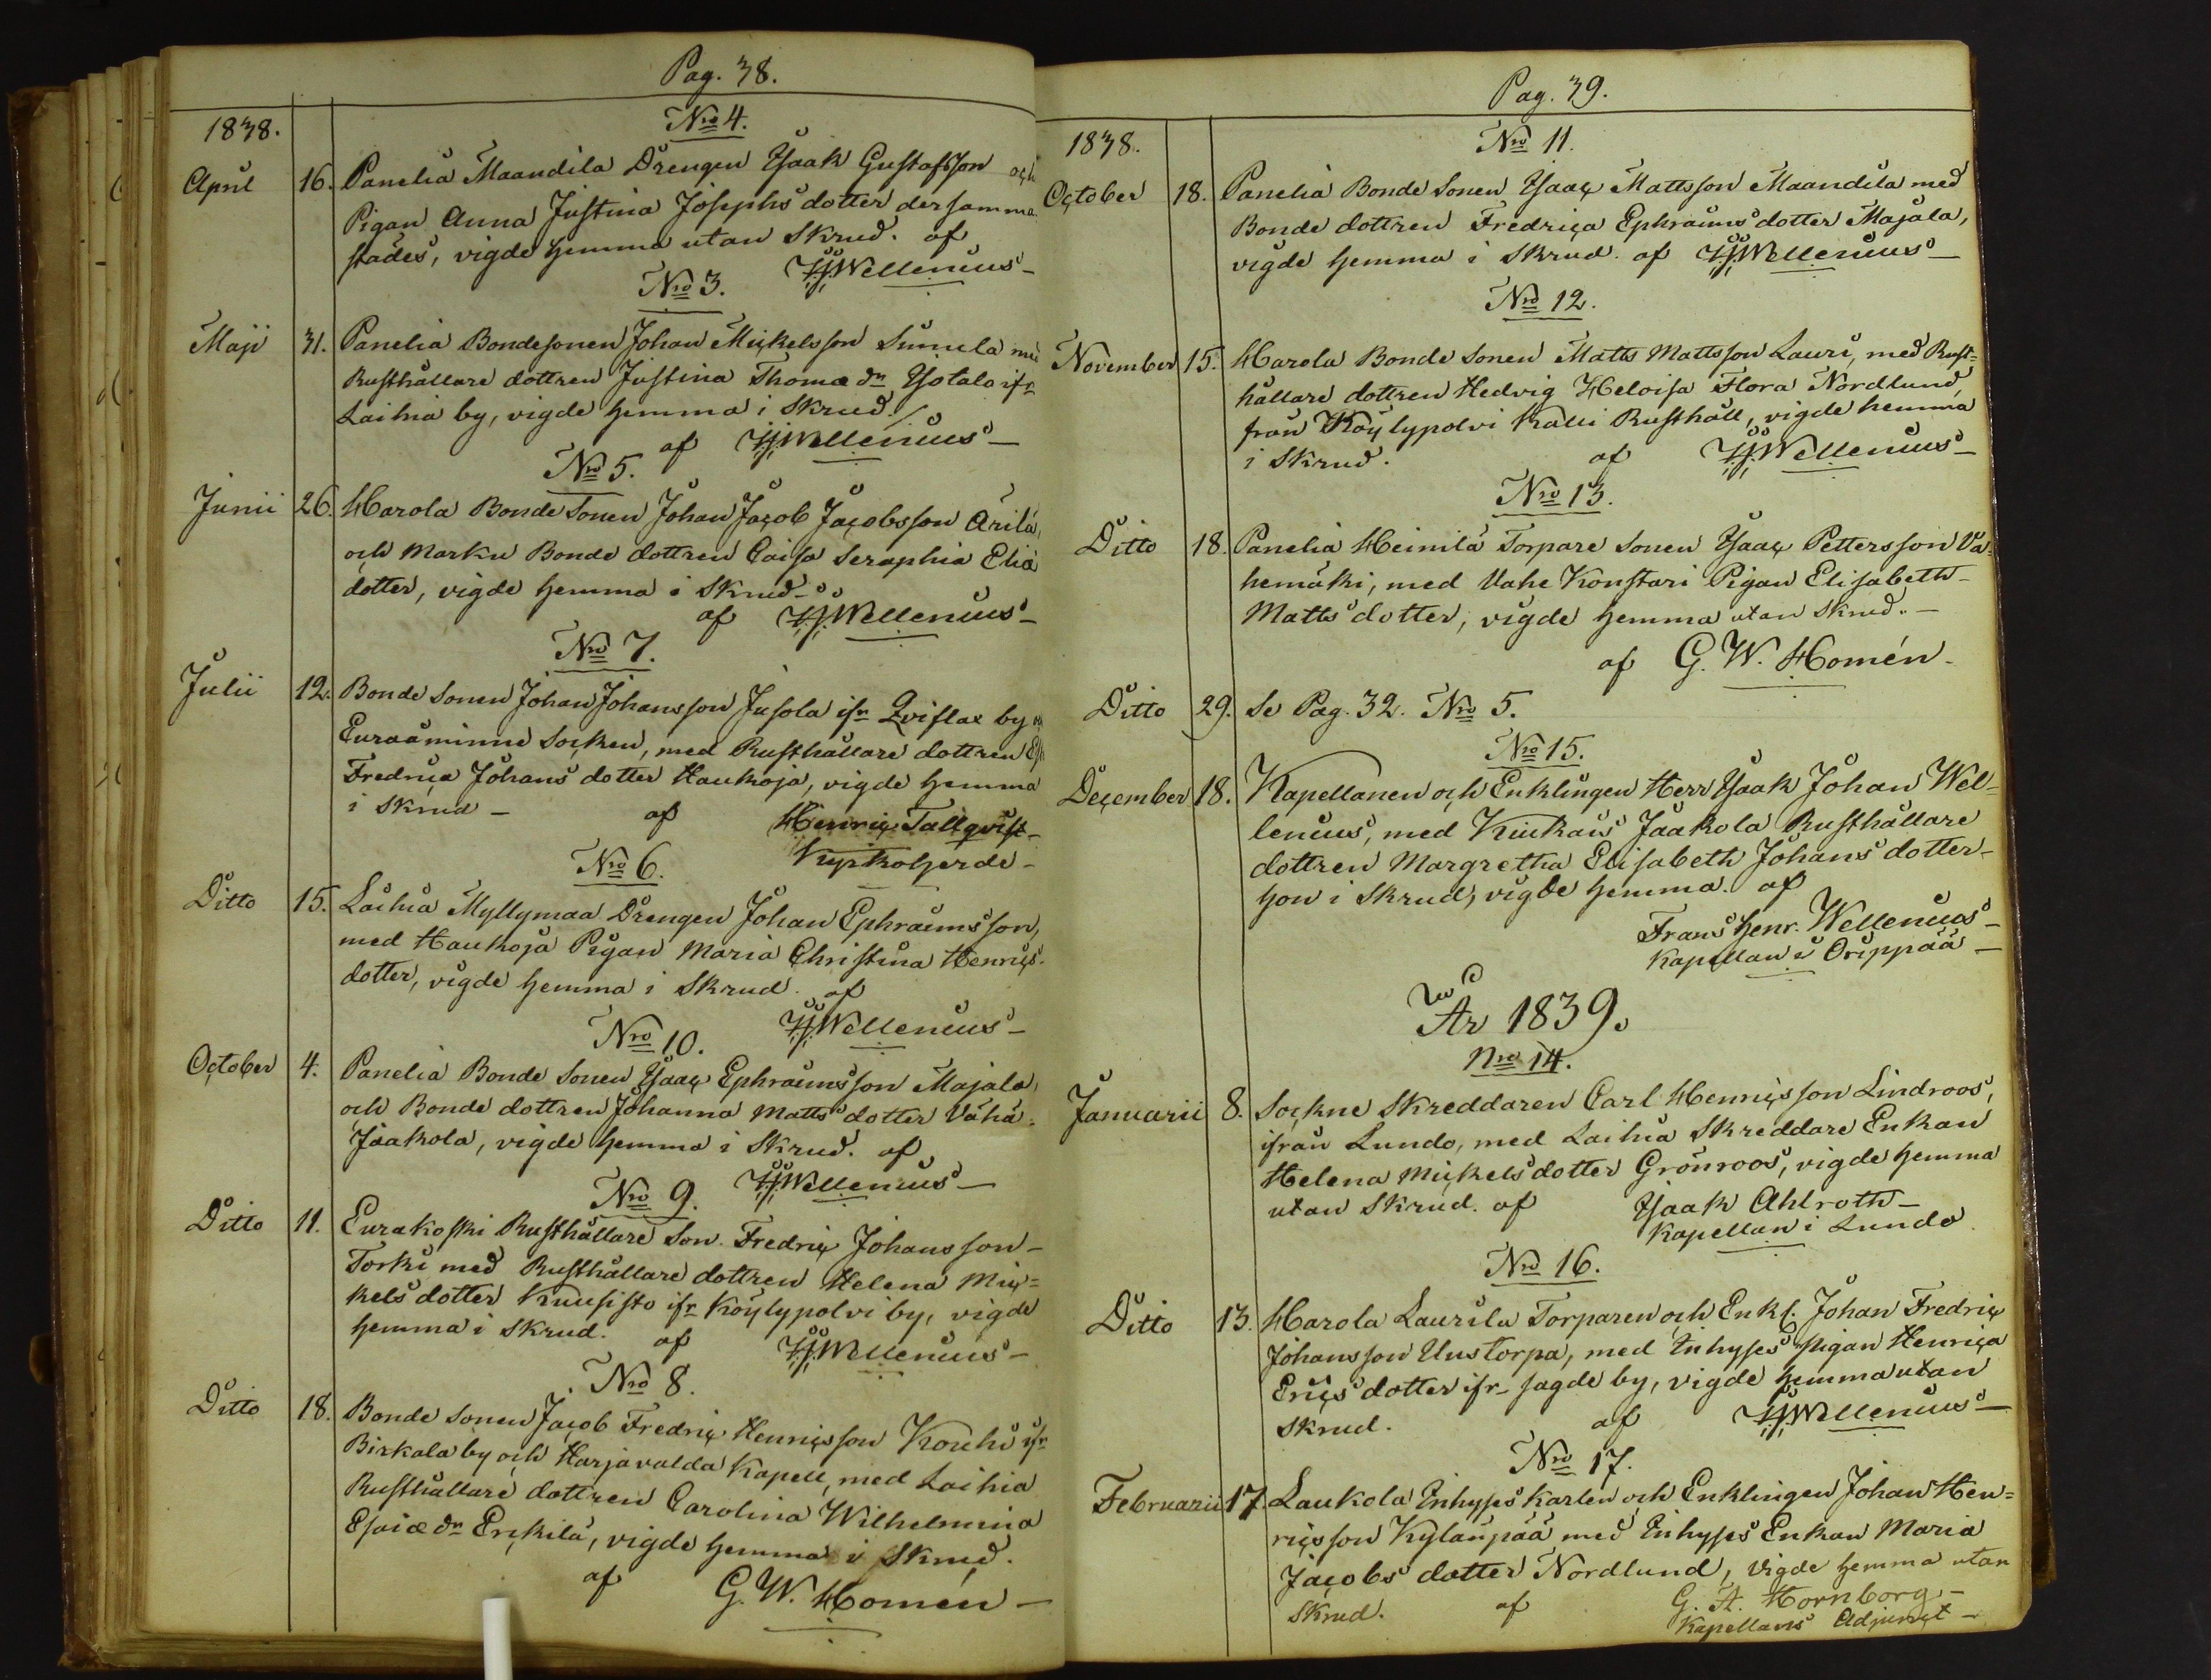 Pag. 38.
1838.
Nro 4.
April 16. Panelia Maandila Drengen Isaak Gustafsson och
Pigan Anna Justina Josephs dotter dersamma
städes, vigde hemma utan Skrud. af
IJWellenius
Nro 3.
Maji 31. Panelia Bondesonen Johan Mickelsson Sunila med
Rusthållare dottren Justina Thomæ dr Isotalo ifr
Laihia by, vigde hemma i Skrud./
af IJWellenius
Nro 5.
Junii 26. Harola Bonde Sonen Johan Jacob Jacobsson Arila,
och Marku Bonde dottren Caisa Seraphia Eliæ
dotter, vigde hemma i Skrud
af IJWellenius
Nro 7.
Julii 12. Bonde Sonen Johan Johansson Jusola ifr Qviflax by och
Euraåminne Socken, med Rusthållare dottren
Fredrica Johans dotter Haukoja, vigde hemma
i Skrud - af Henric Tallqvist
Kyrkoherde
Nro 6.
Ditto 15. Laihia Myllymaa Drengen Johan Ephraimsson,
med Haukoja Pigan Maria Christina Henrics
dotter, vigde hemma i Skrud. af
IJWellenius
Nro 10.
October 4. Panelia Bonde Sonen Isaac Ephraimsson Majala,
och Bonde dottren Johanna Matts dotter Vähä
Jaakola, vigde hemma i Skrud. af
IJWellenius
Nro 9.
Ditto 11. Eurakoski Rusthållare Son Fredric Johansson
Torki med Rusthållare dottren Helena Mic=
kels dotter Kuusisto ifr Köylypolvi by, vigde
hemma i Skrud. af IJWellenius
Nro 8.
Ditto 18. Bonde Sonen Jacob Fredric Henricsson Kouhi ifr
Birkala by och Harjavalda Kapell, med Laihia
Rusthållare dottren Carolina Wilhelmina
Esaiæ dr Erckilä, vigde hemma i Skrud.
af G. W. Homén
Pag. 39.
1838.
Nro 11.
October 18. Panelia Bonde Sonen Isaac Mattsson Maandila med
Bonde dottren Fredrica Ephraims dotter Majala,
vigde hemma i Skrud. af IJWellenius
Nro 12.
November 15. Harola Bonde Sonen Matts Mattsson Lauri, med Rust=
hållare dottren Hedvig Heloisa Flora Nordlund
från Köylypolvi Kalli Rusthåll, vigde hemma
i Skrud. af IJWellenius
Nro 13.
Ditto 18. Panelia Heimilä Torpare Sonen Isaac Pettersson Va=
hemäki, med Vahe Konstari Pigan Elisabeth
Matts dotter, vigde hemma utan Skrud.
af G. W. Homén.
Ditto 29. Se Pag. 32. Nro 5.
Nro 15.
December 18. Kapellanen och Enklingen Herr Isaak Johan Wel=
lenius, med Kiukais Jaakola Rusthållare
dottren Margretha Elisabeth Johans dotter
hon i Skrud, vigde hemma. af
Frans Henr. Wellenius
Kapellan i Orippää
År 1839.
Nro 14.
Januarii 8. Sockne Skreddaren Carl Henricsson Lindroos,
ifrån Lundo, med Laihia Skreddare Enkan
Helena Mickels dotter Grönroos, vigde hemma
utan Skrud. af Isaak Ahlroth
Kapellan i Lundo
Nro 16.
Ditto 13. Harola Laurila Torparen och Enkl. Johan Fredric
Johansson Uustorpa, med Inhyses pigan Henrica
Erics dotter ifr sagde by, vigde hemma utan
Skrud. af IJWellenius
Nro 17.
Februarii 17. Laukola Inhyses Karlen och Enklingen Johan Hen=
ricsson Kylänpää med Inhyses Enkan Maria
Jacobs dotter Nordlund, vigde hemma utan
Skrud. af G. A. Hornborg
Kapellans Adjunct